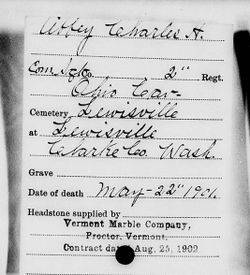 Abbey Charles H.
Com. Sgt Co. 2" Regt.
Ohio Cav.
Cemetery, Lewisville
at Lewisville
Clarke Co. Wash.
Grave
Date of death May-22" 1901.
Headstone supplied by
Vermont Marble Company,
Proctor, Vermont.
Contract date Aug. 25, 1902